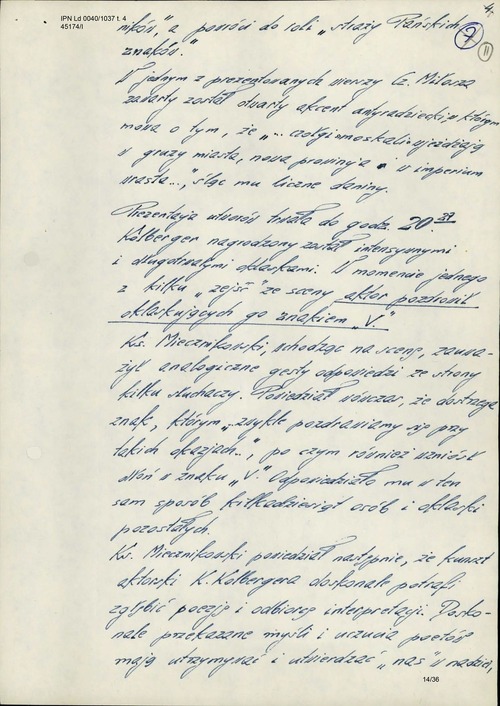 IPN Ld 0040/1037 t. 4
45174/I
7
11
ników", a powróci do roli „straży Pańskich
znaków."
W jednym z prezentowanych wierszy Cz. Miłosza
zawarty został otwarty akcent antyradziecki, w którym
mowa o tym, że „... czołgi moskali wjeżdżają
w gruzy miasta, nowa prowincja w imperium
wrasta...", śląc mu liczne daniny.
Prezentacja utworów trwała do godz. 20
Kolberger nagrodzony został intensywnymi
i długotrwałymi oklaskami. W momencie jednego
z kilku „zejść" ze sceny aktor pozdrowił
oklaskujących go znakiem „V".
Ks. Miecznikowski, wchodząc na scenę, zauwa-
żył analogiczne gesty odpowiedzi ze strony
kilku słuchaczy. Powiedział wówczas, że dostrzega
znak, którym „zwykle pozdrawiamy się przy
takich okazjach...", po czym również wzniósł
dłoń w znaku „V". Odpowiedziało mu w ten
sam sposób kilkadziesiąt osób i oklaski
pozostałych.
Ks. Miecznikowski powiedział następnie, że kunszt
aktorski K. Kolbergera doskonale potrafi
zgłębić poezję i odbiorcę interpretacji. Dosko-
nale przekazane myśli i uczucia poetów
mają utrzymywać i utwierdzać „nas" w nadziei,
14/36